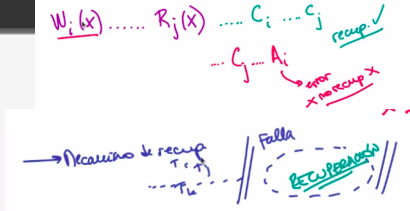 Wi(x) ...... Rj(x) ..... Ci ... Cj
recup. ✓
... Cj .... Ai
error
x no recup x
→ Mecanismo de recup
Falla
Ti Tj
..... Tk .....
RECUPERACIÓN